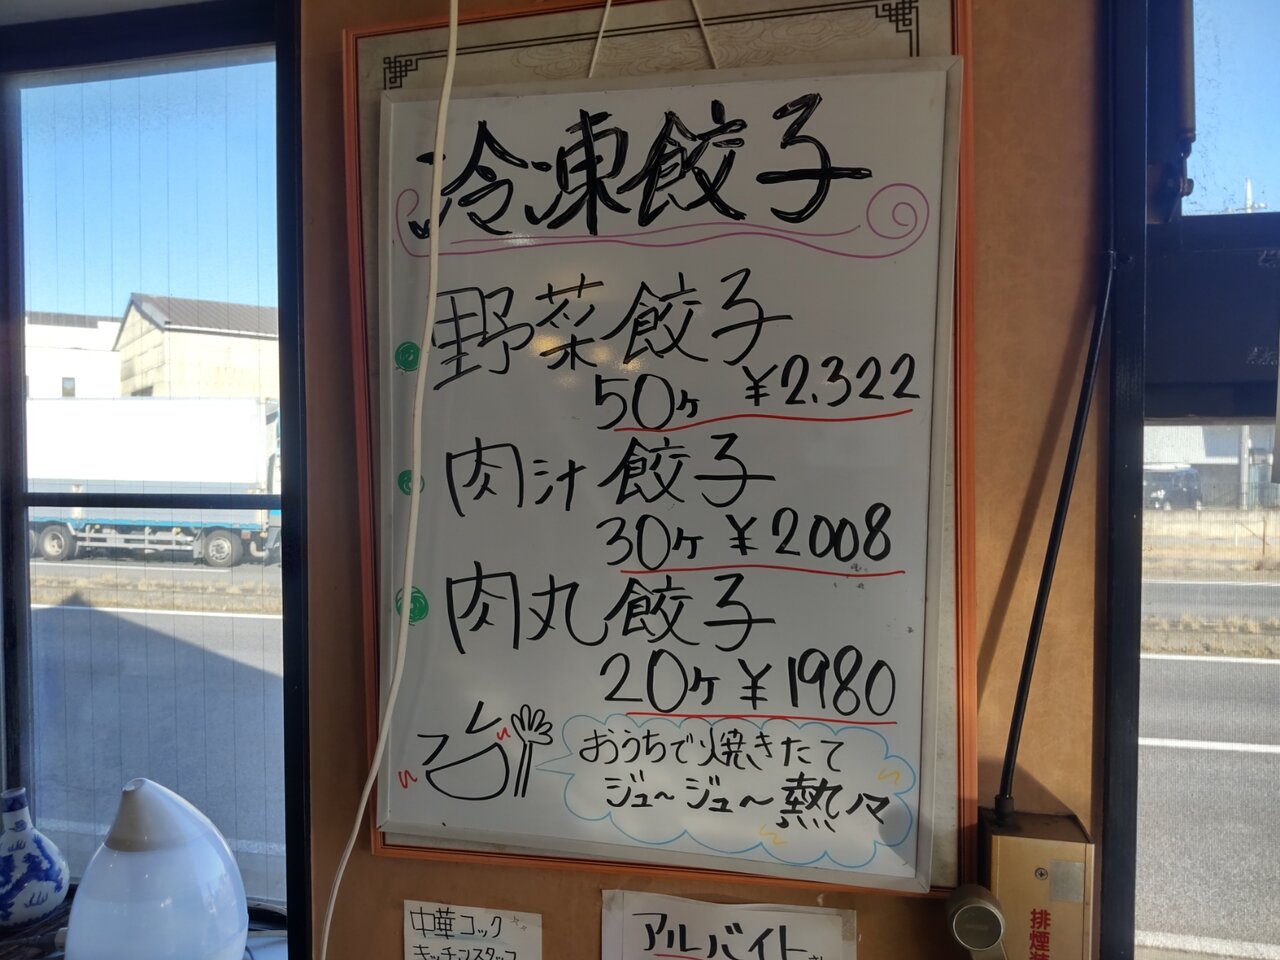 冷凍餃子
野菜餃子
50ヶ ¥2.322
肉汁餃子
30ヶ ¥2008
肉丸餃子
20ヶ ¥1980
おうちで焼きたて
ジュ〜ジュ〜熱々
中華コック
キッチンスタッフ
アルバイト
排煙